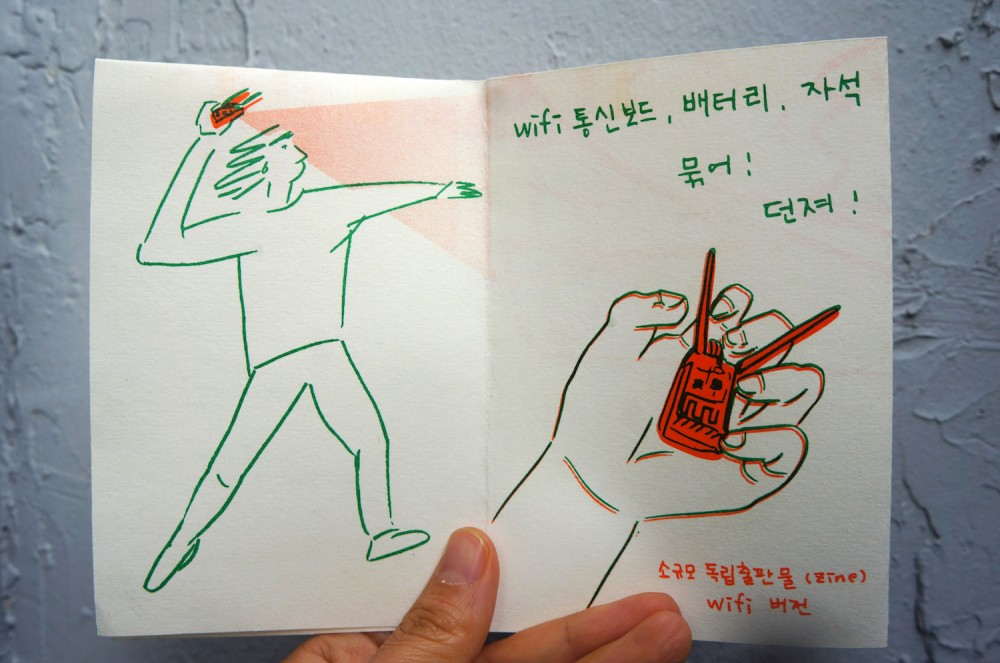 wifi 통신보드, 배터리, 자석
묶어!
던져!
소규모 독립출판물 (zine)
wifi 버전